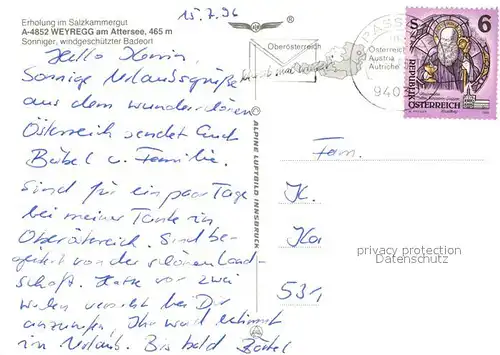 15.7.96
Erholung im Salzkammergut
A-4852 WEYREGG am Attersee, 465 m
Sonniger, windgeschützter Badeort
Hallo Kerrin,
Sonnige Urlaubsgrüße
aus dem wunderschönen
Österreich sendet Euch
Bäbel u. Familie.
Sind für ein paar Tage
bei meiner Tante in
Oberösterreich. Sind be-
geistert von der schönen Land-
schaft. Hatte vor zwei
wochen versucht bei Dir
anzurufen, Ihr ward bestimmt
in Urlaub. Bis bald Bäbel
ALPINE LUFTBILD INNSBRUCK
Oberösterreich
Österreich
Austria
Autriche
940
6
S
REPUBLIK
ÖSTERREICH
Fam.
K.
Kai
531
privacy protection
Datenschutz